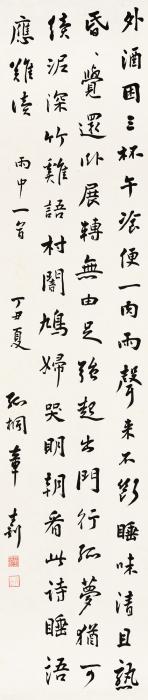 夘酒困三杯午飡便一肉雨聲来不斷睡味清且熟
昏、覺還卧展轉無由足強起出門行孤夢猶可
續泥深竹雞語村闇鳩婦哭明朝看此詩睡語
應難讀 雨中一首 丁丑夏 孤桐章士釗